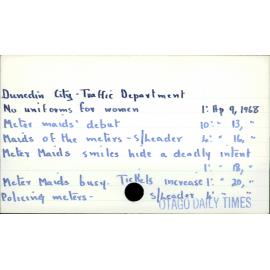 Dunedin City - Traffic Department
No uniforms for women 1: Ap 9, 1968
Meter maids' debut 10: " 13, "
Maids of the meters - s/leader 4: " 16, "
Meter Maids smiles hide a deadly intent
1: " 18, "
Meter Maids busy. Tickets increase 1: " 20, "
Policing meters - s/leader 4: " "
OTAGO DAILY TIMES